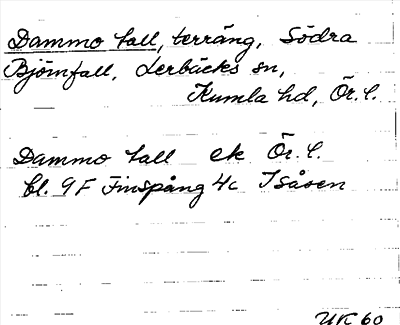 Dammo tall, terräng, Södra
Björnfall, Lerbäcks sn,
Kumla hd, Ör. l.
Dammo tall ek Ör. l.
bl. 9F Finspång 4c Isåsen
UK 60